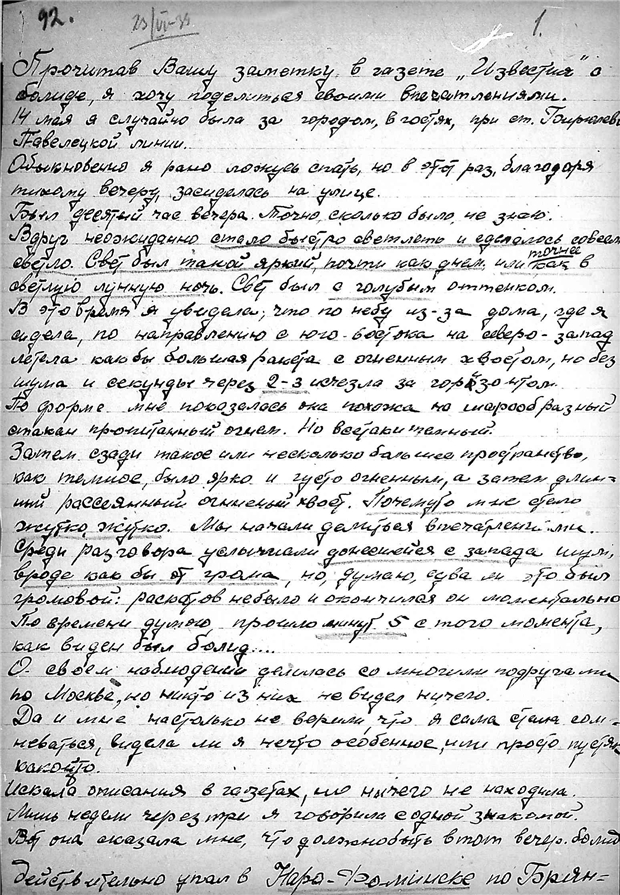 92.
23/VI-39
1.
Прочитав Вашу заметку в газете „Известия" о
болиде, я хочу поделиться своими впечатлениями.
14 мая я случайно была за городом, в гостях, при ст. Бирюлево
Павелецкой линии.
Обыкновенно я рано ложусь спать, но в этот раз, благодаря
тихому вечеру, засиделась на улице.
Был десятый час вечера. Точно, сколько было, не знаю.
Вдруг неожиданно стало быстро светлеть и сделалось совсем
светло. Свет был такой яркий, почти как днем или точнее как в
светлую лунную ночь. Свет был с голубым оттенком.
В это время я увидела, что по небу из-за дома, где я
сидела, по направлению с юго-востока на северо-запад
летела как бы большая ракета с огненным хвостом, но без
шума и секунды через 2-3 исчезла за горизонтом.
По форме мне показалась она похожа на шарообразный
стакан пропитанный огнем. Но всетаки темный.
Затем сзади такое или несколько большее пространство,
как темное, было ярко и густо огненным, а затем длин-
ный рассеянный огненый хвост. Почемуто мне стало
жутко, жутко. Мы начали делиться впечатлениями.
Среди разговора услышали донесшейся с запада шум,
вроде как бы от грома, но, думаю, едва ли это был
громовой: раскатов небыло и окончился он моментально
По времени думаю прошло минут 5 с того момента,
как виден был болид....
О своем наблюдении делилась со многими подругами
по Москве, но никто из них не видел ничего.
Да и мне настолько не верили, что я сама стала сом-
неваться, видела ли я нечто особенное, или просто пустяк
какойто.
Искала описания в газетах, но ничего не находила.
Лишь недели через три я говорила с одной знакомой.
Вот она сказала мне, что должнобыть в тот вечер болид
действительно упал в Наро-Фоминске по Брян-